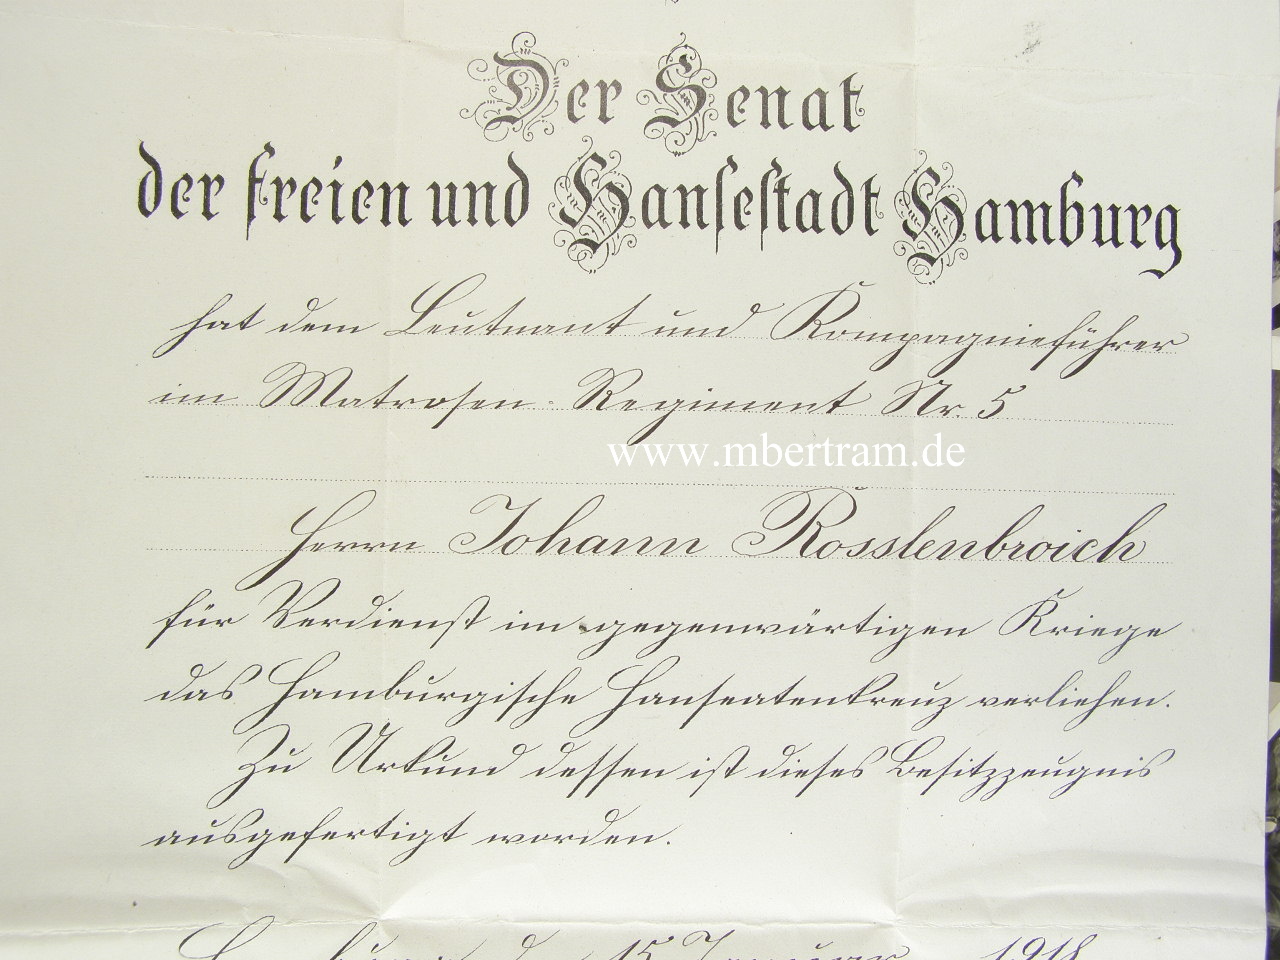 Der Senat
der freien und Hansestadt Hamburg
hat dem Leutnant und Kompagnieführer
im Matrosen-Regiment Nr. 5
www.mbertram.de
Herrn Johann Rosslenbroich
für Verdienst im gegenwärtigen Kriege
das Hamburgische Hanseatenkreuz verliehen.
Zu Urkund dessen ist dieses Besitzzeugnis
ausgefertigt worden.
15 Januar 1918